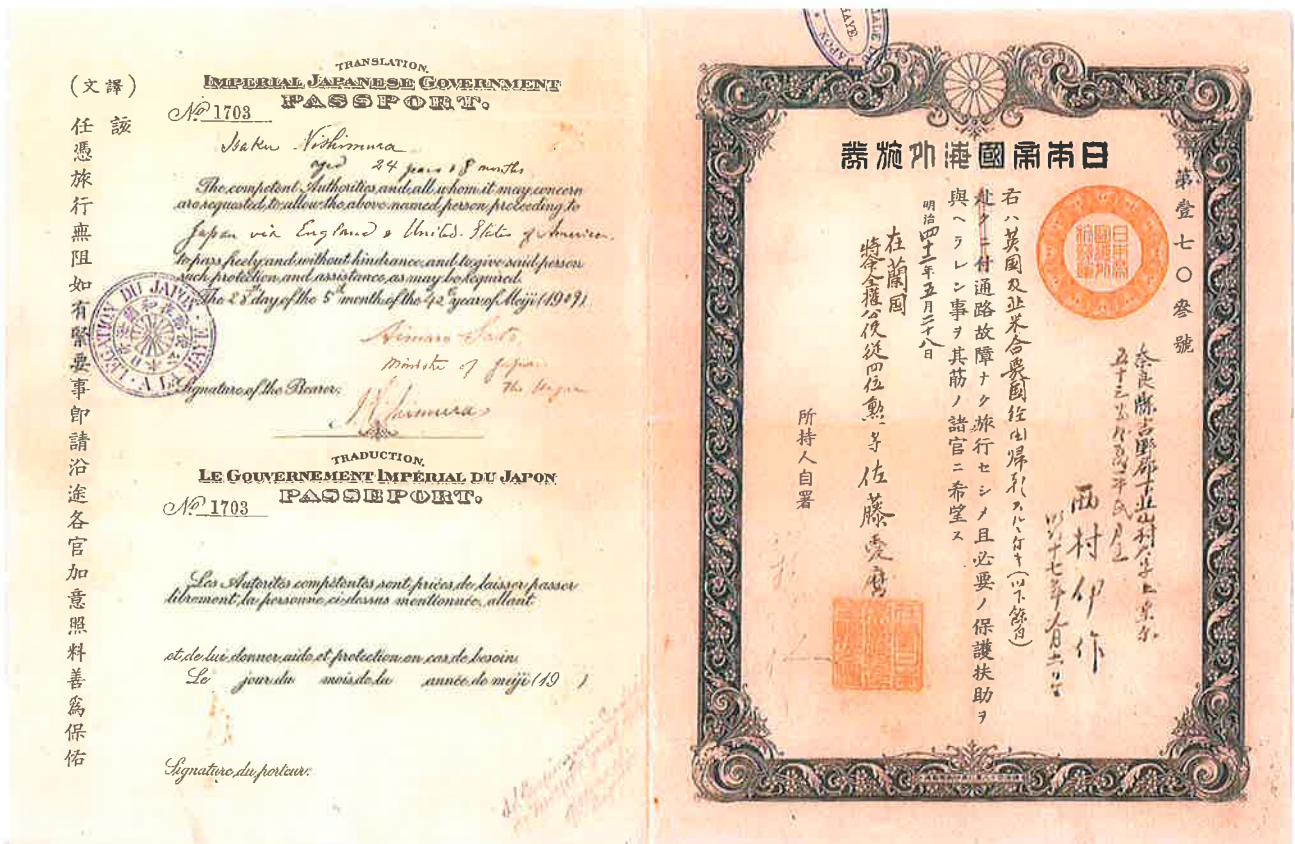 (譯文)
該
任憑旅行無阻如有緊要事卽請沿途各官加意照料善為保佑
TRANSLATION.
IMPERIAL JAPANESE GOVERNMENT
PASSPORT.
No 1703
Isaku Nishimura
aged 24 years & 8 months
The competent Authorities and all whom it may concern
are requested to allow the above named person proceeding to
Japan via England & United States of America.
to pass freely and without hindrance, and to give said person
such protection and assistance as may be required.
The 28th day of the 5th month of the 42nd year of Meiji (1909)
Aimaro Sato
Minister of Japan
The Hague
Signature of the Bearer:
I. Nishimura
LEGATION DU JAPON
A LA HAYE
TRADUCTION.
LE GOUVERNEMENT IMPÉRIAL DU JAPON
PASSEPORT.
No 1703
Les Autorités compétentes sont priées de laisser passer
librement la personne ci-dessus mentionnée, allant
et de lui donner aide et protection en cas de besoin.
Le jour du mois de la année de meiji (19 )
Signature du porteur:
HAYE
JAPON
日本帝國海外旅券
第壹七〇叄號
奈良縣吉野郡下北山村
西村伊作
右ハ英國及北米合衆國經由歸朝
赴クニ付通路故障ナク旅行セシメ且必要ノ保護扶助ヲ
與ヘラレン事ヲ其筋ノ諸官ニ希望ス
明治四十二年五月二十八日
在蘭國
特命全權公使從四位勲三等佐藤愛麿
所持人自署